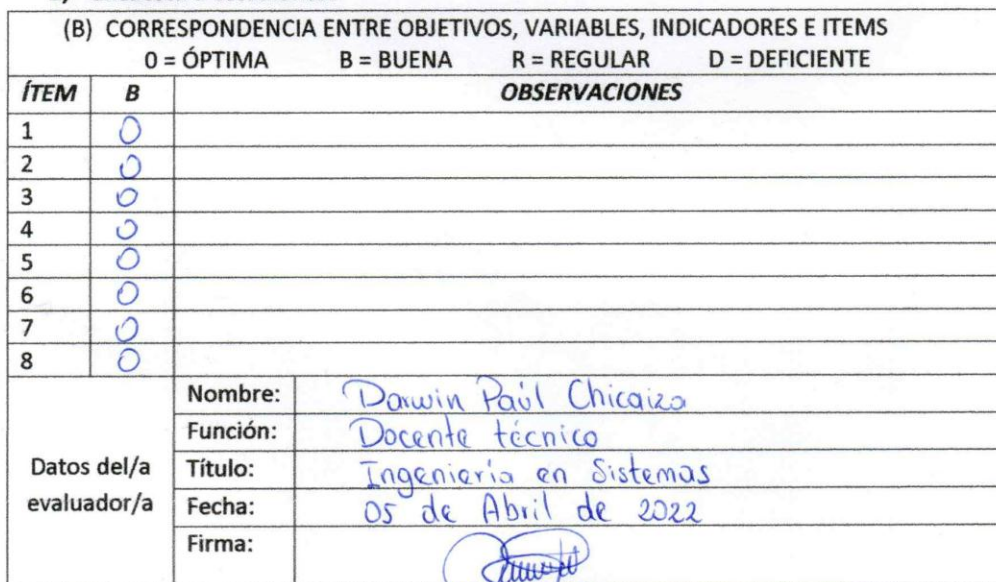 (B) CORRESPONDENCIA ENTRE OBJETIVOS, VARIABLES, INDICADORES E ITEMS
0 = ÓPTIMA B = BUENA R = REGULAR D = DEFICIENTE
ÍTEM B OBSERVACIONES
1 O
2 O
3 O
4 O
5 O
6 O
7 O
8 O
Datos del/a evaluador/a
Nombre: Darwin Paúl Chicaiza
Función: Docente técnico
Título: Ingeniería en Sistemas
Fecha: 05 de Abril de 2022
Firma: